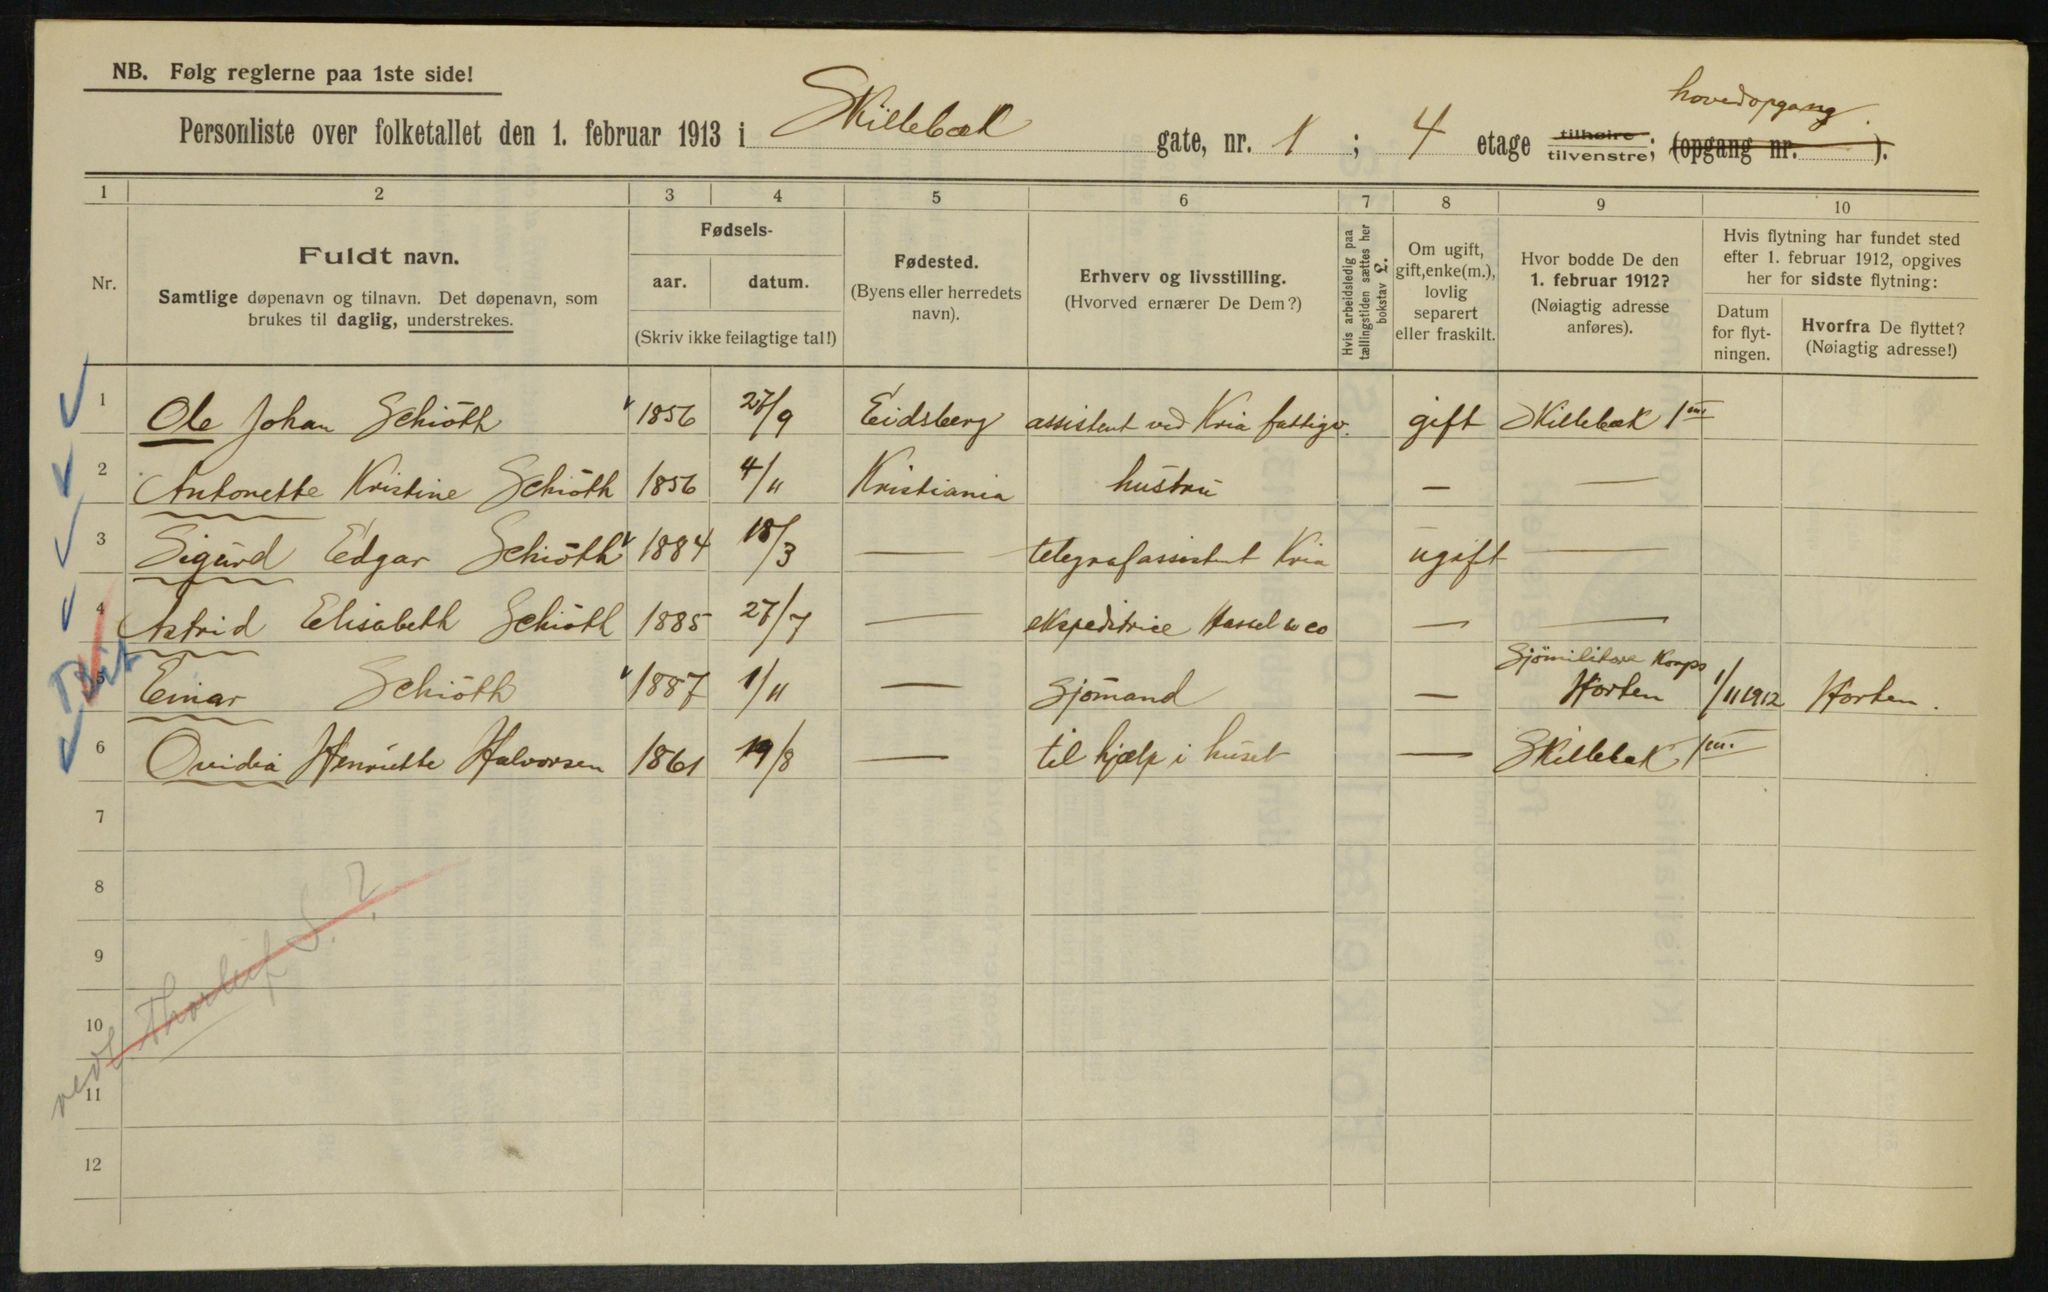 NB. Følg reglerne paa 1ste side!
hovedopgang.
Personliste over folketallet den 1. februar 1913 i Skillebæk gate, nr. 1 ; 4 etage tilhøire tilvenstre; (opgang nr. ).
1 2 3 4 5 6 7 8 9 10
Nr.
Fuldt navn.
Samtlige døpenavn og tilnavn. Det døpenavn, som
brukes til daglig, understrekes.
Fødsels-
aar. datum.
(Skriv ikke feilagtige tal!)
Fødested.
(Byens eller herredets
navn).
Erhverv og livsstilling.
(Hvorved ernærer De Dem?)
Hvis arbeidsledig paa
tællingstiden sættes her
bokstav £.
Om ugift,
gift, enke(m.),
lovlig
separert
eller fraskilt.
Hvor bodde De den
1. februar 1912?
(Nøiagtig adresse
anføres).
Hvis flytning har fundet sted
efter 1. februar 1912, opgives
her for sidste flytning:
Datum
for flyt-
ningen.
Hvorfra De flyttet?
(Nøiagtig adresse!)
1 Ole Johan Schiöth 1856 27/9 Eidsberg assistent ved Kria fattigv. gift Skillebæk 1 III
2 Antonette Kristine Schiöth 1856 4/11 Kristiania hustru — —
3 Sigurd Edgar Schiöth 1884 18/3 — telegrafassistent Kria ugift —
4 Astrid Elisabeth Schiöth 1885 27/7 — ekspeditrice Hassel & co — —
Sjömilitære Korps
5 Einar Schiöth 1887 1/11 — Sjömand — Horten 1/11 1912 Horten.
6 Ovidia Henriette Halvorsen 1861 19/8 — til hjælp i huset — Skillebæk 1 III
7
8
9
10
11
12
vedl Thorleif S. ?